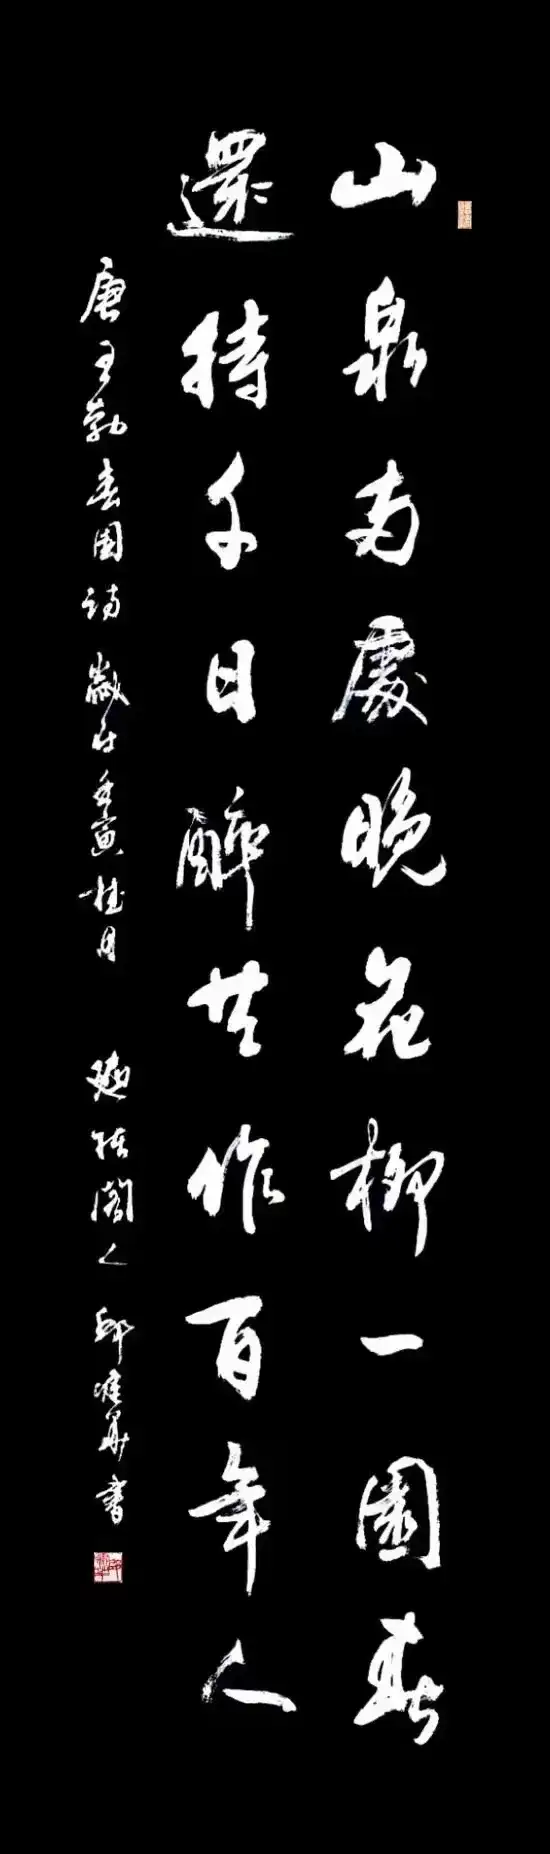 山泉両處晚花柳一園春
還持千日醉共作百年人
唐王勃春園詩 歲在壬寅桂月 閣人 邱華書